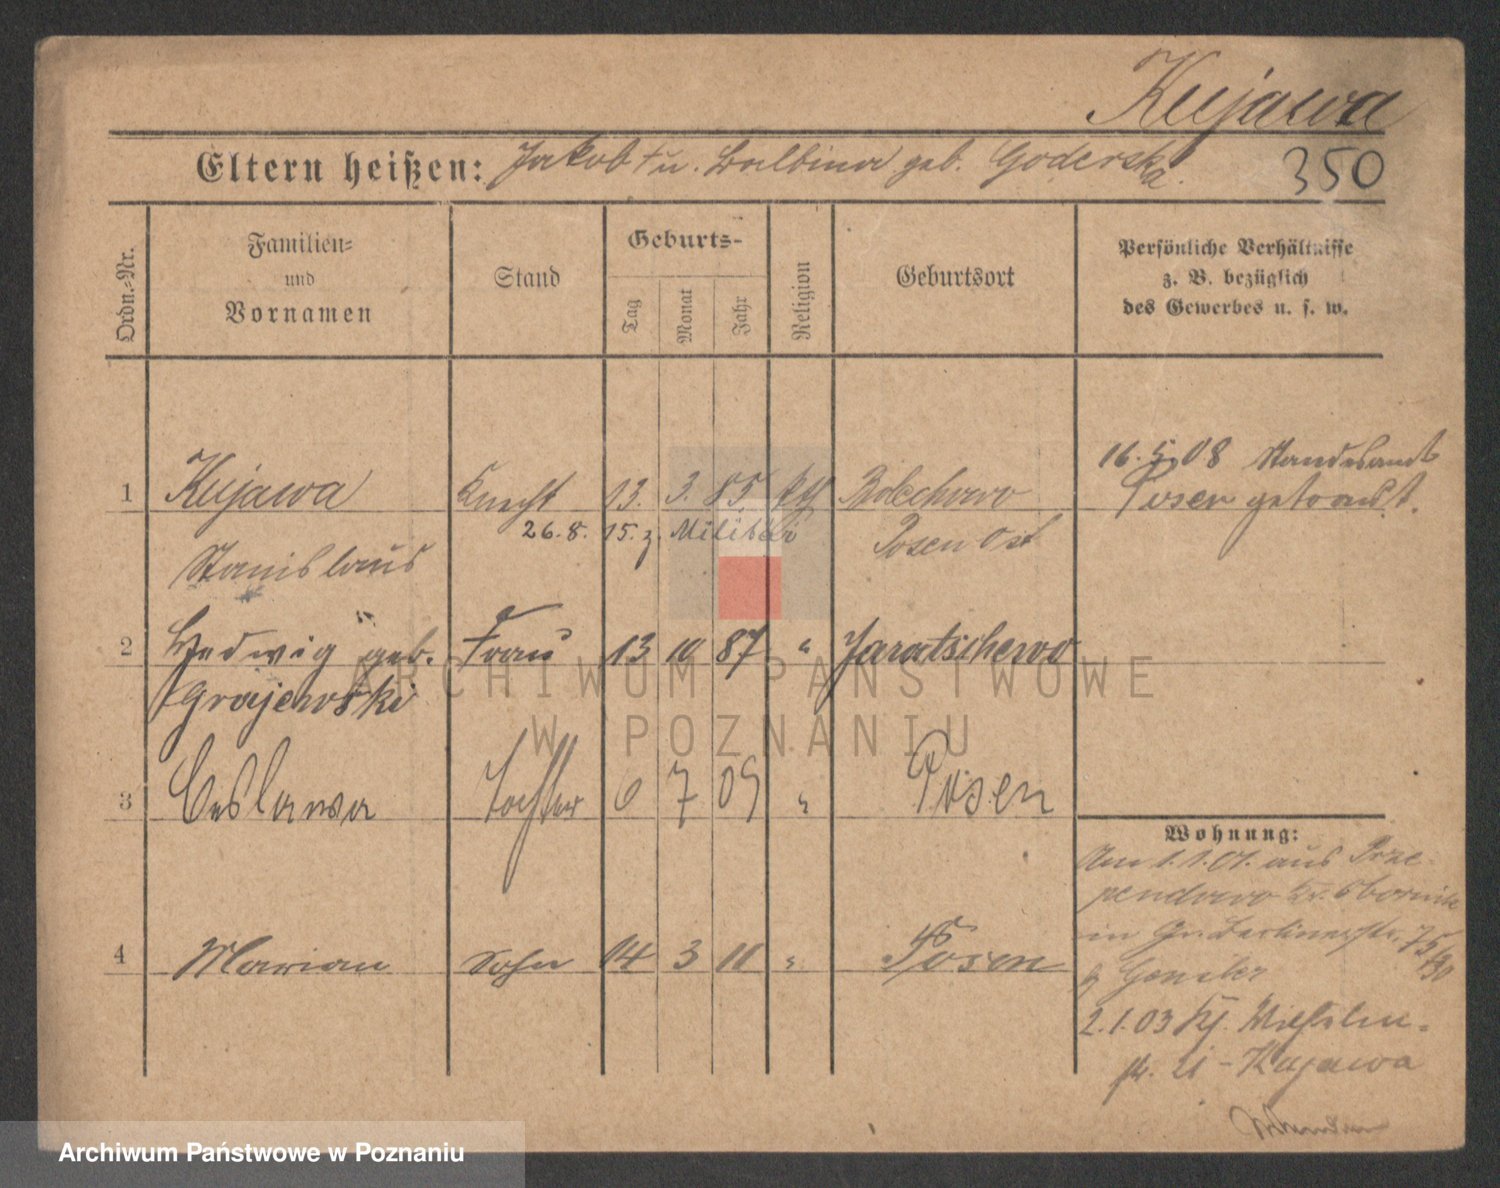 Kujawa
Eltern heißen: Jakob † u. Balbina geb. Goderska.
350
Ordn.-Nr.
Familien-
und
Vornamen
Stand
Geburts-
Tag
Monat
Jahr
Religion
Geburtsort
Persönliche Verhältnisse
z. B. bezüglich
des Gewerbes u. s. w.
16. 5. 08 Standesamt
1 Kujawa Knecht 13. 3. 85 kth Bolechowo Posen getraut.
26. 8. 15. z. Militär
Stanislaus Posen Ost
2 Hedwig geb. Frau 13 10 87 " Jaratschewo
Grajewski
3 Ceslawa Tochter 6 7 09 " Posen
Wohnung:
Am 1.1.01. aus Prze-
pendowo Kr. Obornik
in Gr. Berlinerstr. 75/
4 Marian Sohn 14 3 11 " Posen
2.1.03 Wilhelm-
str. - Kujawa
ARCHIWUM PAŃSTWOWE
W POZNANIU
Archiwum Państwowe w Poznaniu